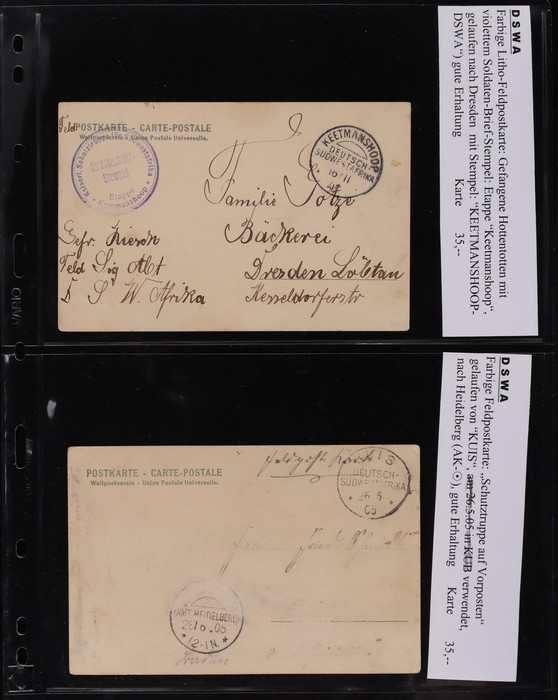 DSWA
Farbige Litho-Feldpostkarte: Gefangene Hottentotten mit
violettem Soldaten-Brief-Stempel: Etappe "Keetmanshoop",
gelaufen nach Dresden mit Stempel: "KEETMANSHOOP-
DSWA") gute Erhaltung Karte 35,--
Feld POSTKARTE - CARTE-POSTALE
Weltpostverein - Union Postale Universelle.
Kaiserl. Schutztruppe Südwestafrika
Stempel
Etappe
Keetmanshoop
KEETMANSHOOP
DEUTSCH-
SÜDWESTAFRIKA
Familie Totze
Bäckerei
Dresden Löbtau
Kesseldorferstr
Gefr. Kiesch
Feld Sig Abt
D S W. Afrika
ORIVA
DSWA
Farbige Feldpostkarte: „Schutztruppe auf Vorposten"
gelaufen von "KUIS", am 26.5.05 in KUB verwendet,
nach Heidelberg (AK-☉), gute Erhaltung Karte 35,--
POSTKARTE - CARTE-POSTALE
Weltpostverein - Union Postale Universelle.
Feldpost Karte
KUIS
DEUTSCH-
SÜDWESTAFRIKA
26.5
05
(AMT HEIDELBERG)
05
*12-1N.*